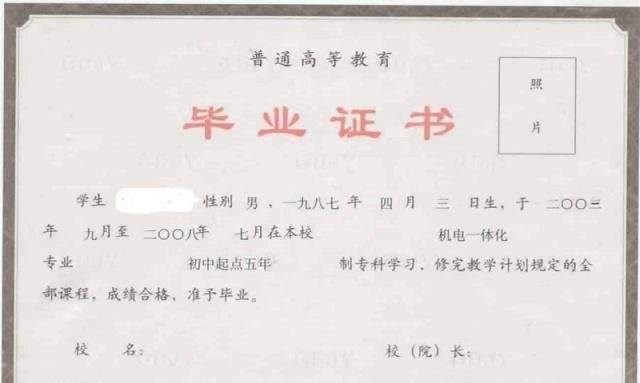 普通高等教育
毕业证书
照
片
学生 性别 男 、一九八七 年 四 月 三 日生，于 二〇〇三
年 九月至 二〇〇八年 七月在本校 机电一体化
专业 初中起点五年 制专科学习，修完教学计划规定的全
部课程，成绩合格，准予毕业。
校 名： 校（院）长：